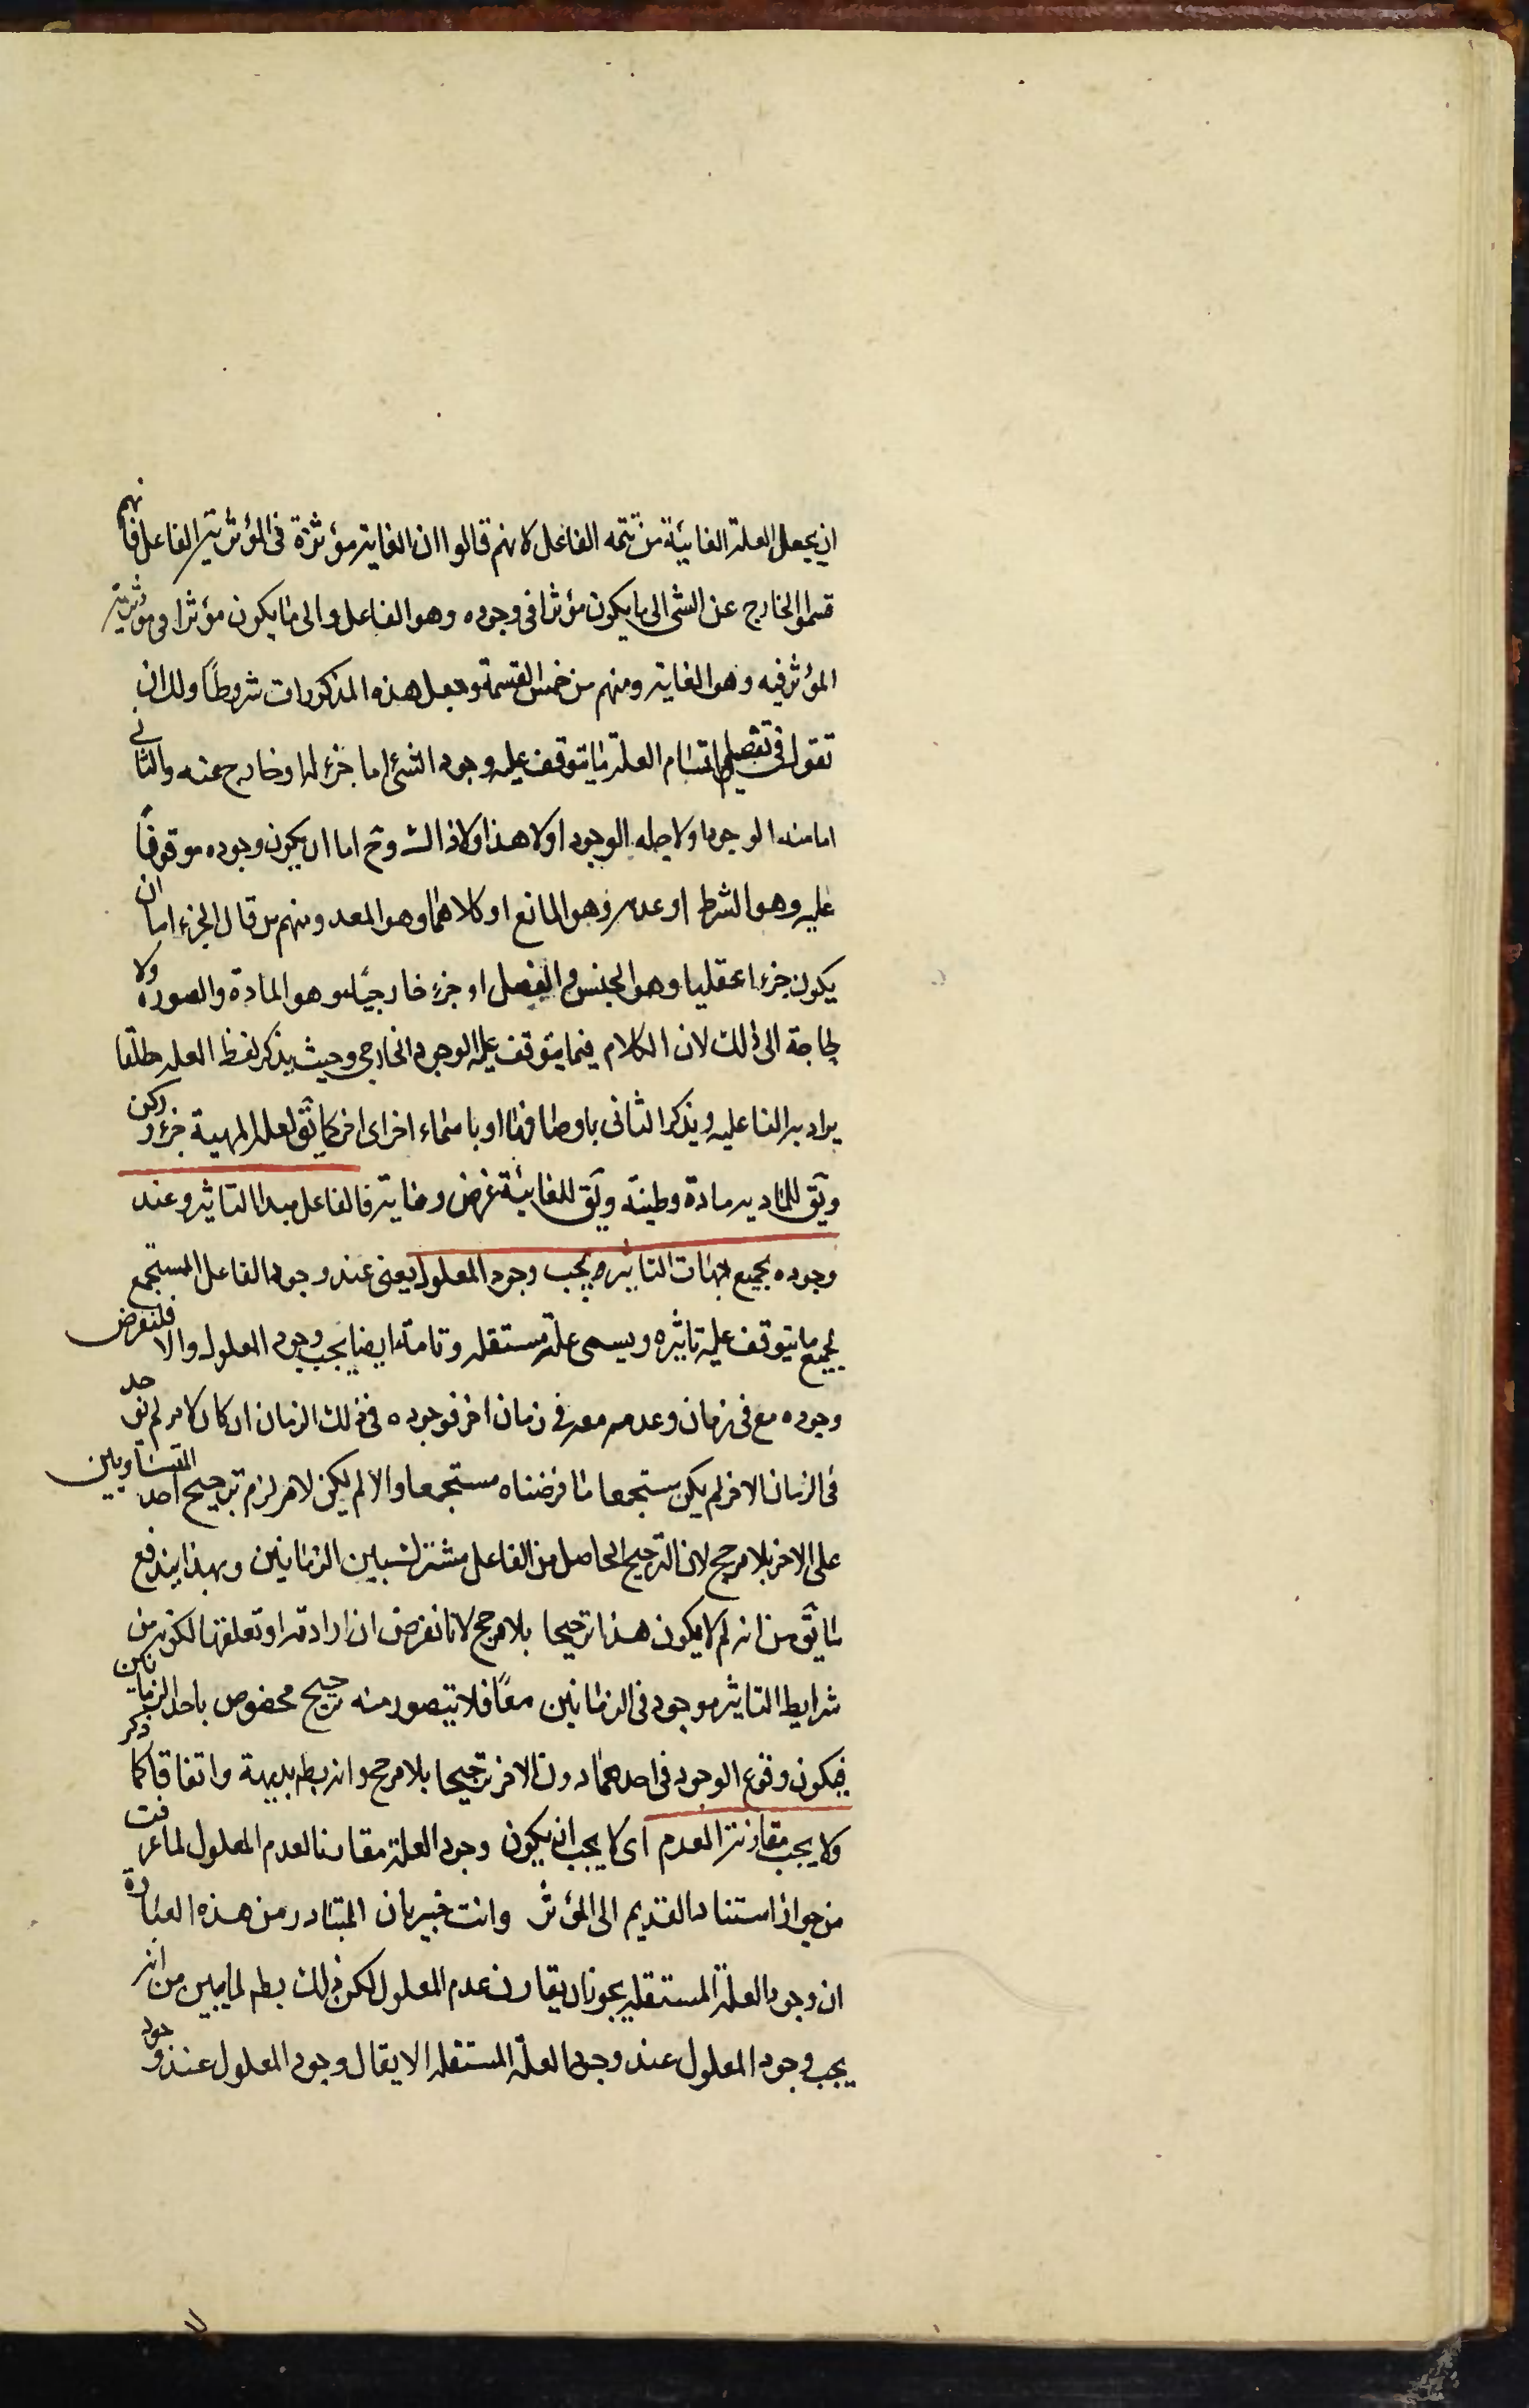 ان يجعل العلة الغائية من تتمه الفاعل لانهم قالوا ان الغاية مؤثرة فى المؤثرية الفاعل فانهم
قسموا الخارج عن الشئ الى ما يكون مؤثرا فى وجوده وهو الفاعل والى ما يكون مؤثرا فى مؤثرية
المؤثر فيه وهو الغاية ومنهم من خمس القسمة وجعل هذه المذكورات شروطاً ولك ان
تقول فى تفصيل اقسام العلة ما يتوقف عليه وجود الشئ اما جزء له او خارج عنه والثانى
اما منه الوجود او لاجله الوجود او لا هذا ولا ذاك وح اما ان يكون وجوده موقوفاً
عليه وهو الشرط او عدمه وهو المانع او كلاهما وهو المعد ومنهم من قال الجزء اما ان
يكون جزءا عقليا وهو الجنس والفصل او جزء خارجيًا وهو المادة والصورة ولا
حاجة الى ذلك لان الكلام فيما يتوقف عليه الوجود الخارجى وحيث يذكر لفظ العله مطلقا
يراد به الفاعليه ويذكر الثانى باوصافها او باسماء اخر كما يق لعلة المهية جزء وركن
ويق للمادية مادة وطينة ويق للغائية غرض وغاية فالفاعل مبدا التاثير وعند
وجوده بجميع جهات التاثير يجب وجود المعلول يعنى عند وجود الفاعل المستجمع
لجميع ما يتوقف عليه تاثيره ويسمى علة مستقله وتامة ايضا يجب وجود المعلول والا فلنفرض
وجوده مع فى زمان وعدمه معه فى زمان اخر فوجوده فى ذلك الزمان ان كان لامر لم يوجد
فى الزمان الاخر لم يكن مستجمعا ما فرضناه مستجمعا والا لم يكن لامر لزم ترجيح احد المتساويين
على الاخر بلا مرجح لان الترجيح الحاصل من الفاعل مشترك بين الزمانين وبهذا يندفع
ما يق من انه لم لا يكون هذا ترجيحا بلا مرجح لانا نفرض ان ارادته او تعلقها لكونه من
شرايط التاثير موجود فى الزمانين معًا فلا يتصور منه ترجيح مخصوص باحد الزمانين
فيكون وقوع الوجود فى احدهما دون الاخر ترجيحا بلا مرجح وانه بط بديهة واتفاقا كما ذكر
ولا يجب مقارنة العدم اى لا يجب ان يكون وجود العلة مقارنا لعدم المعلول لما عرفت
من جواز استناد القديم الى المؤثر وانت خبير بان المتبادر من هذه العبارة
ان وجود العلة المستقله يجوز ان يقارن عدم المعلول لكن ذلك بط لما يبين من انه
يجب وجود المعلول عند وجود العلة المستقله الا يقال وجود المعلول عند وجود